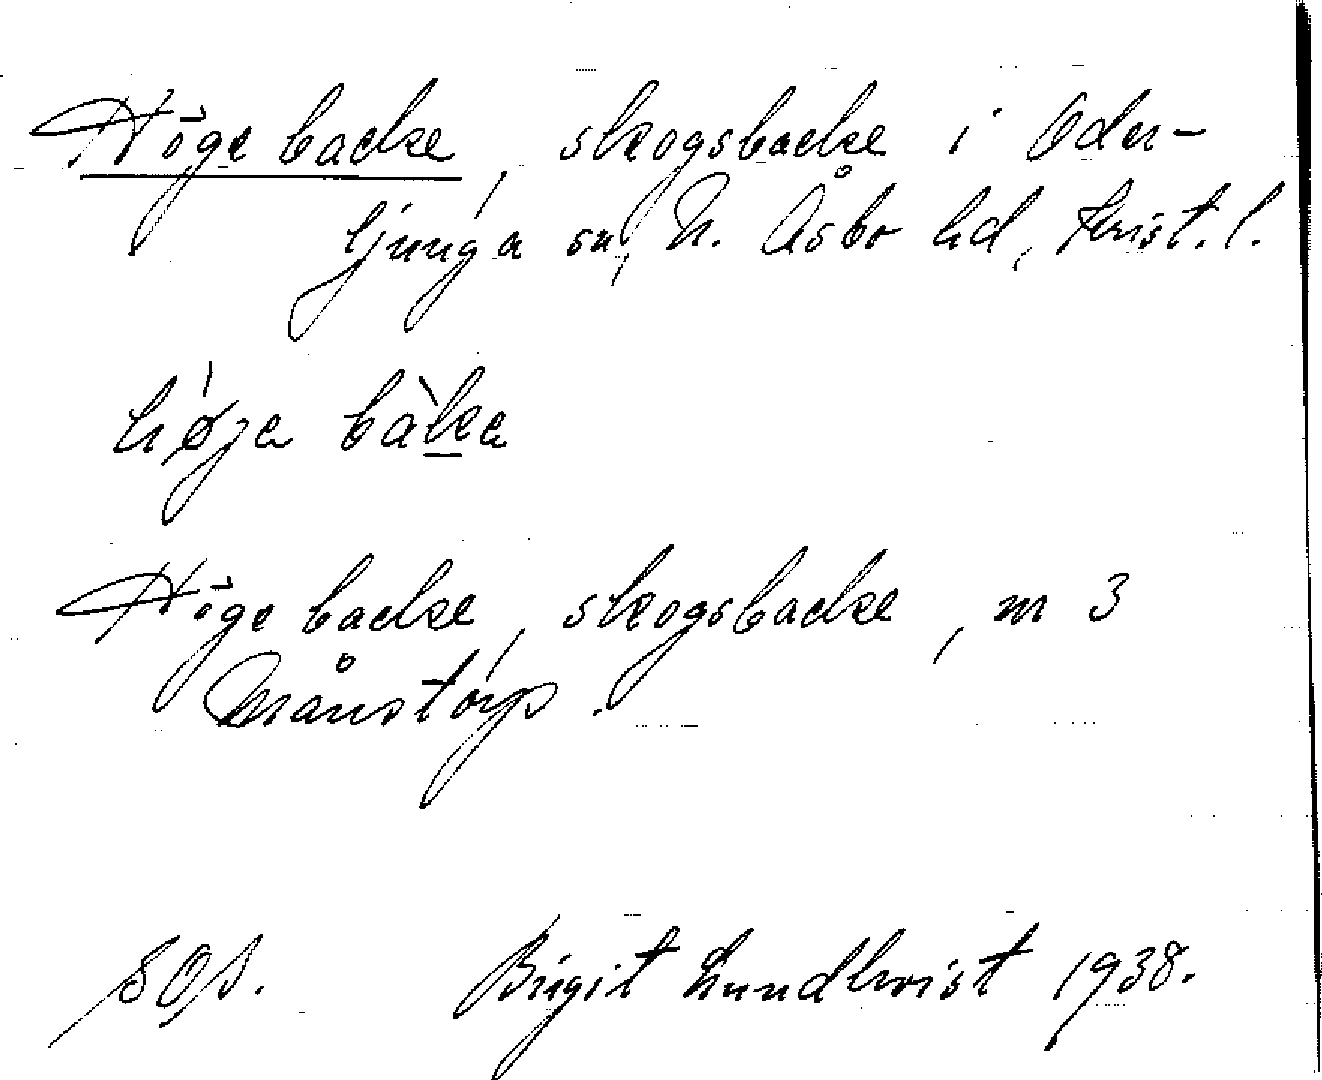 Höge backe, skogsbacke i Oder-
ljunga sn, N. Åsbo hd, Krist. l.
hø'ja bàka
Höge backe, skogsbacke, m 3
Månstorp.
SOJ. Birgit Lundkvist 1938.